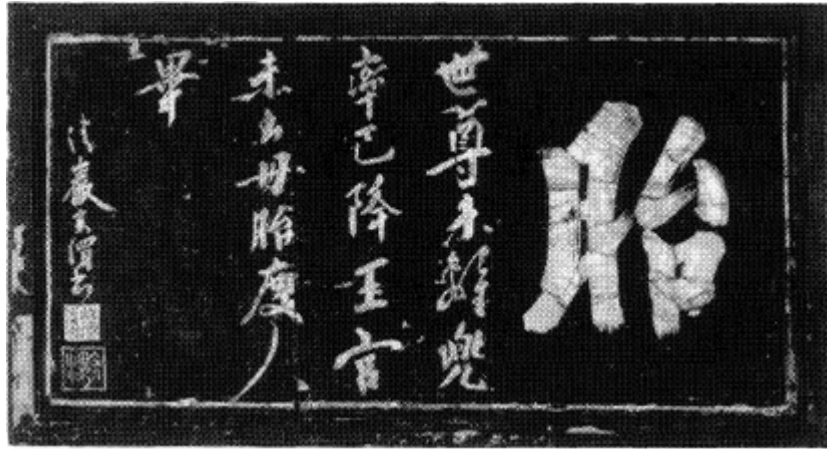 胎
世尊未離兜
率已降王宮
未出母胎度人
畢